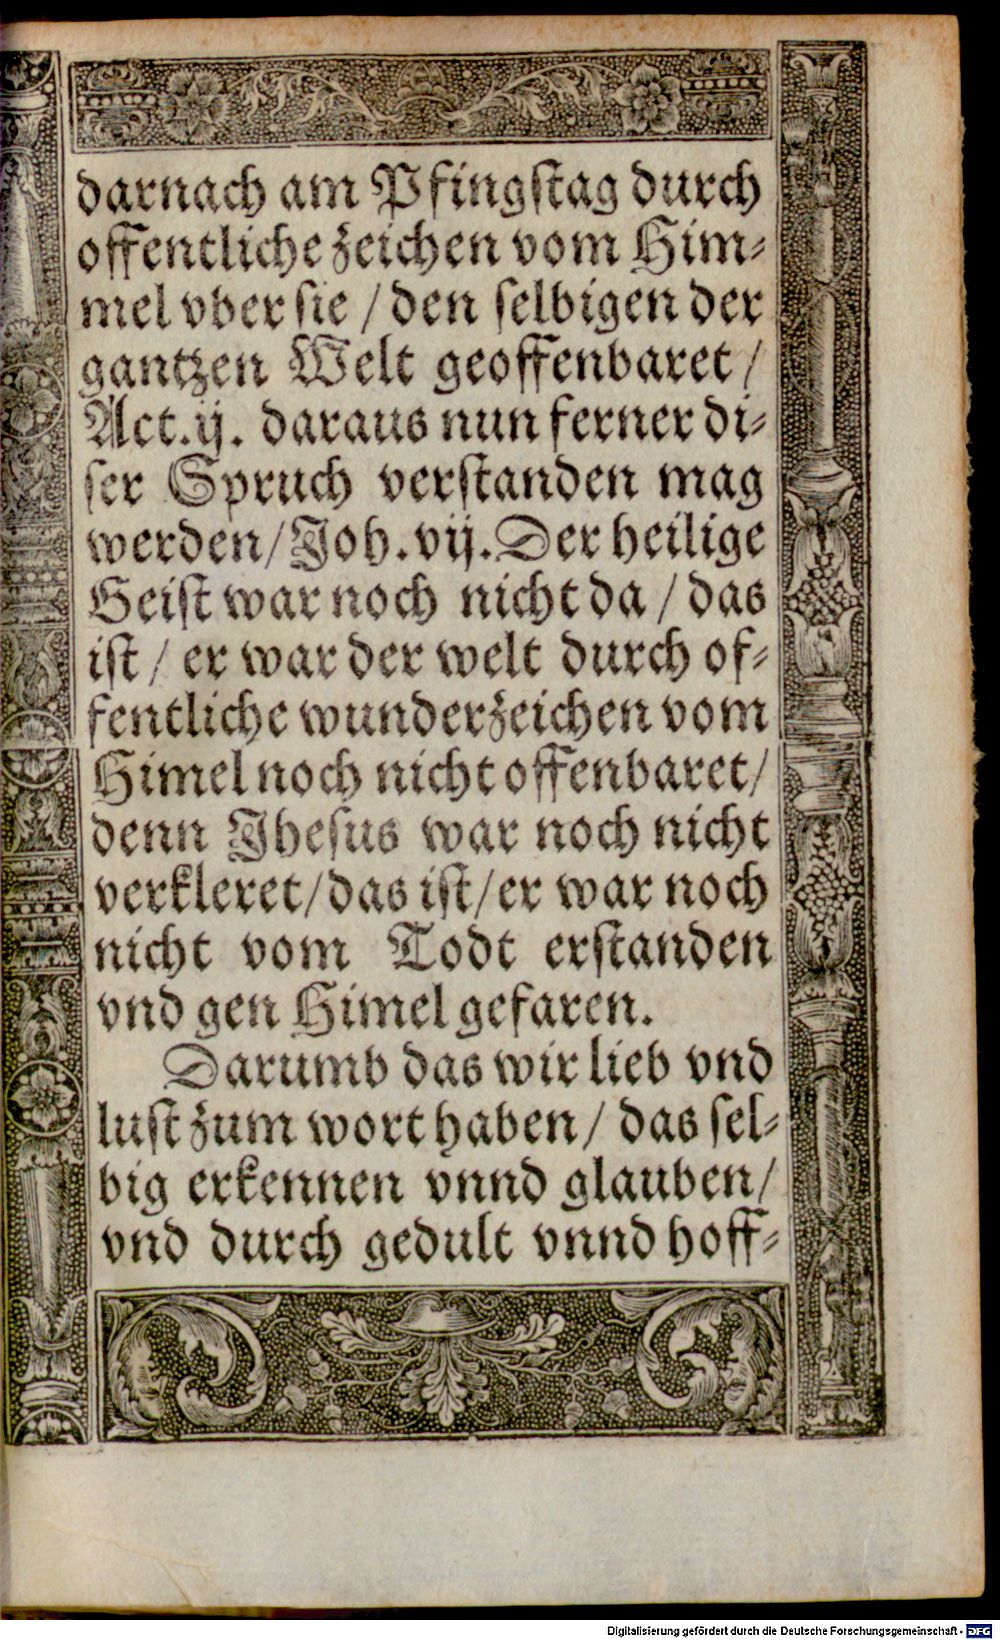 darnach am Pfingstag durch
offentliche zeichen vom Him-
mel vber sie / den selbigen der
gantzen Welt geoffenbaret /
Act. ij. daraus nun ferner di-
ser Spruch verstanden mag
werden / Joh. vij. Der heilige
Geist war noch nicht da / das
ist / er war der welt durch of-
fentliche wunderzeichen vom
Himel noch nicht offenbaret /
denn Jhesus war noch nicht
verkleret / das ist / er war noch
nicht vom Todt erstanden
vnd gen Himel gefaren.
Darumb das wir lieb vnd
lust zum wort haben / das sel-
big erkennen vnnd glauben /
vnd durch gedult vnnd hoff-
Digitalisierung gefördert durch die Deutsche Forschungsgemeinschaft - DFG